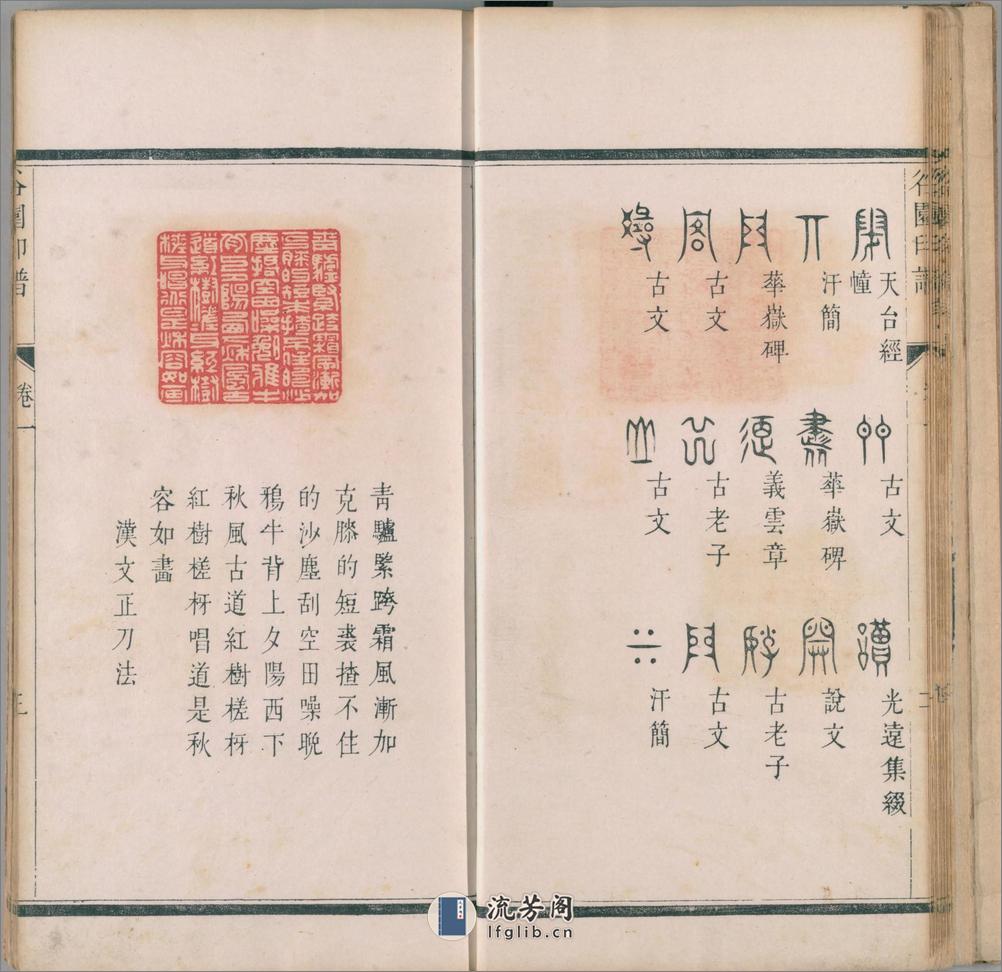 谷園印譜
天台經幢
古文
光遠集綴
汗簡
華嶽碑
說文
華嶽碑
義雲章
古老子
古文
古老子
古文
古文
古文
汗簡
青驢緊跨霜風漸加
克膝的短裘揸不住
的沙塵刮空田噪晚
鴉牛背上夕陽西下
秋風古道紅樹槎枒
紅樹槎枒唱道是秋
容如畫
漢文正刀法
谷園印譜
卷一
三
流芳阁
lfglib.cn